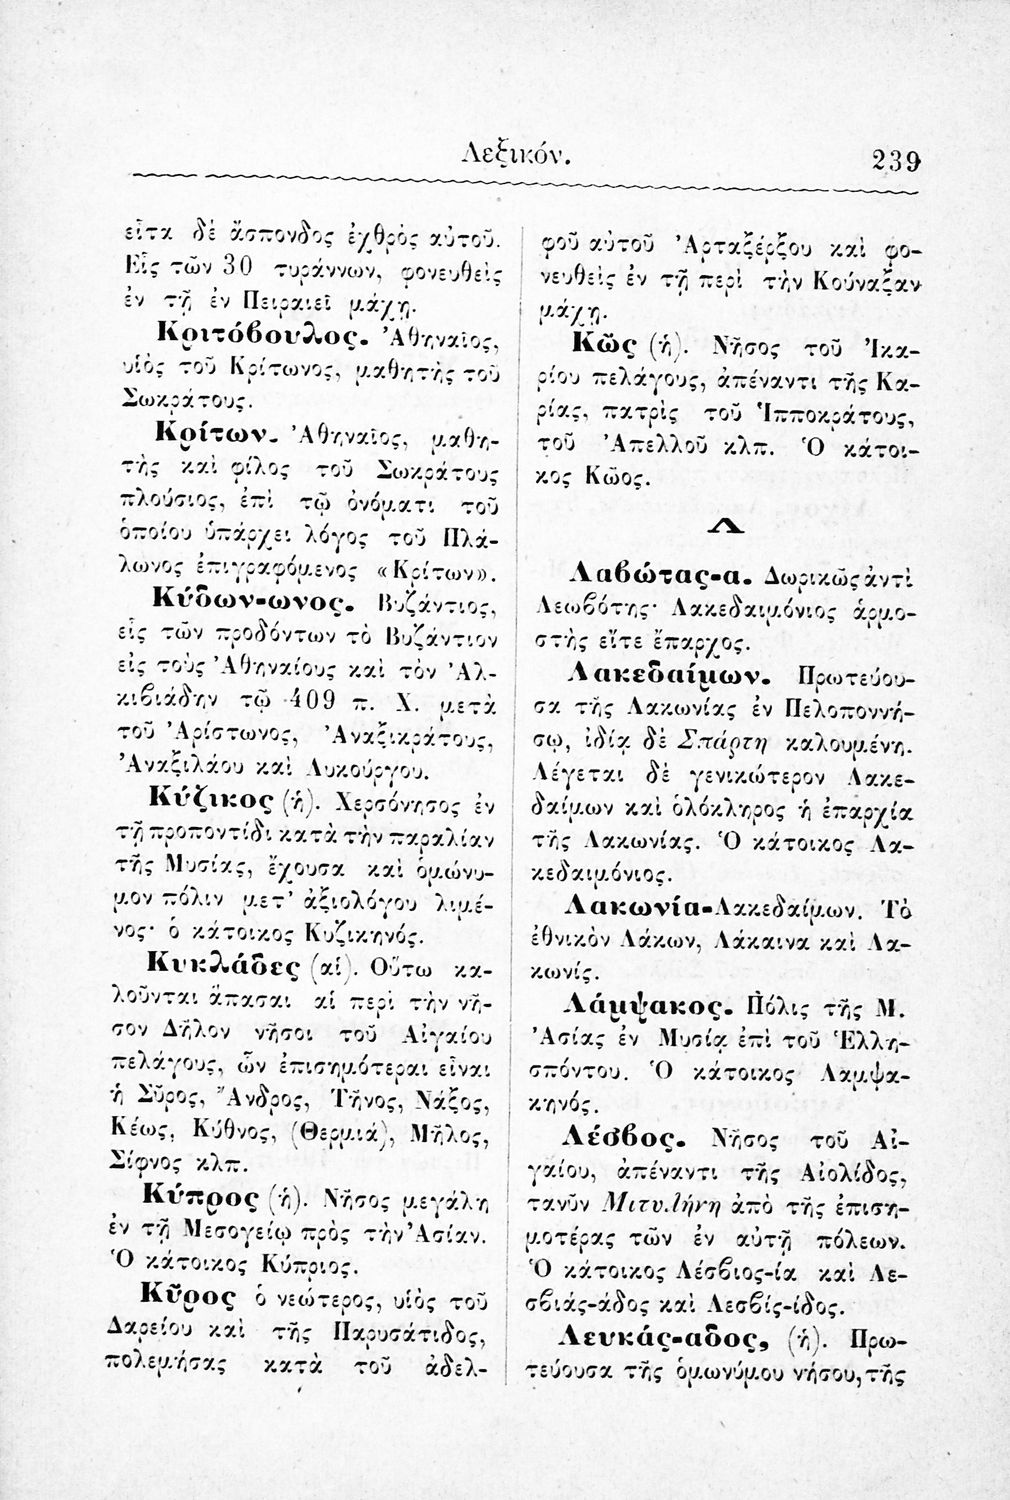 Λεξικόν.
239
εἶτα δὲ ἄσπονδος ἐχθρὸς αὐτοῦ.
Εἷς τῶν 30 τυράννων, φονευθεὶς
ἐν τῇ ἐν Πειραιεῖ μάχῃ.
Κριτόβουλος. Ἀθηναῖος,
υἱὸς τοῦ Κρίτωνος, μαθητὴς τοῦ
Σωκράτους.
Κρίτων. Ἀθηναῖος, μαθη-
τὴς καὶ φίλος τοῦ Σωκράτους
πλούσιος, ἐπὶ τῷ ὀνόματι τοῦ
ὁποίου ὑπάρχει λόγος τοῦ Πλά-
λωνος ἐπιγραφόμενος «Κρίτων».
Κύδων-ωνος. Βυζάντιος,
εἷς τῶν προδόντων τὸ Βυζάντιον
εἰς τοὺς Ἀθηναίους καὶ τὸν Ἀλ-
κιβιάδην τῷ 409 π. Χ. μετὰ
τοῦ Ἀρίστωνος, Ἀναξικράτους,
Ἀναξιλάου καὶ Λυκούργου.
Κύζικος (ἡ). Χερσόνησος ἐν
τῇ προποντίδι κατὰ τὴν παραλίαν
τῆς Μυσίας, ἔχουσα καὶ ὁμώνυ-
μον πόλιν μετ' ἀξιολόγου λιμέ-
νος· ὁ κάτοικος Κυζικηνός.
Κυκλάδες (αἱ). Οὕτω κα-
λοῦνται ἅπασαι αἱ περὶ τὴν νῆ-
σον Δῆλον νῆσοι τοῦ Αἰγαίου
πελάγους, ὧν ἐπισημότεραι εἶναι
ἡ Σῦρος, Ἄνδρος, Τῆνος, Νάξος,
Κέως, Κύθνος, (Θερμιά), Μῆλος,
Σίφνος κλπ.
Κύπρος (ἡ). Νῆσος μεγάλη
ἐν τῇ Μεσογείῳ πρὸς τὴν Ἀσίαν.
Ὁ κάτοικος Κύπριος.
Κῦρος ὁ νεώτερος, υἱὸς τοῦ
Δαρείου καὶ τῆς Παρυσάτιδος,
πολεμήσας κατὰ τοῦ ἀδελ-
φοῦ αὐτοῦ Ἀρταξέρξου καὶ φο-
νευθεὶς ἐν τῇ περὶ τὴν Κούναξαν
μάχῃ.
Κῶς (ἡ). Νῆσος τοῦ Ἰκα-
ρίου πελάγους, ἀπέναντι τῆς Κα-
ρίας, πατρὶς τοῦ Ἱπποκράτους,
τοῦ Ἀπελλοῦ κλπ. Ὁ κάτοι-
κος Κῶος.
Λ
Λαβώτας-α. Δωρικῶς ἀντὶ
Λεωβότης· Λακεδαιμόνιος ἁρμο-
στὴς εἴτε ἔπαρχος.
Λακεδαίμων. Πρωτεύου-
σα τῆς Λακωνίας ἐν Πελοποννή-
σῳ, ἰδίᾳ δὲ Σπάρτη καλουμένη.
Λέγεται δὲ γενικώτερον Λακε-
δαίμων καὶ ὁλόκληρος ἡ ἐπαρχία
τῆς Λακωνίας. Ὁ κάτοικος Λα-
κεδαιμόνιος.
Λακωνία-Λακεδαίμων. Τὸ
ἐθνικὸν Λάκων, Λάκαινα καὶ Λα-
κωνίς.
Λάμψακος. Πόλις τῆς Μ.
Ἀσίας ἐν Μυσίᾳ ἐπὶ τοῦ Ἑλλη-
σπόντου. Ὁ κάτοικος Λαμψα-
κηνός.
Λέσβος. Νῆσος τοῦ Αἰ-
γαίου, ἀπέναντι τῆς Αἰολίδος,
τανῦν Μιτυλήνη ἀπὸ τῆς ἐπιση-
μοτέρας τῶν ἐν αὐτῇ πόλεων.
Ὁ κάτοικος Λέσβιος-ία καὶ Λε-
σβιάς-άδος καὶ Λεσβίς-ίδος.
Λευκάς-αδος, (ἡ). Πρω-
τεύουσα τῆς ὁμωνύμου νήσου, τῆς